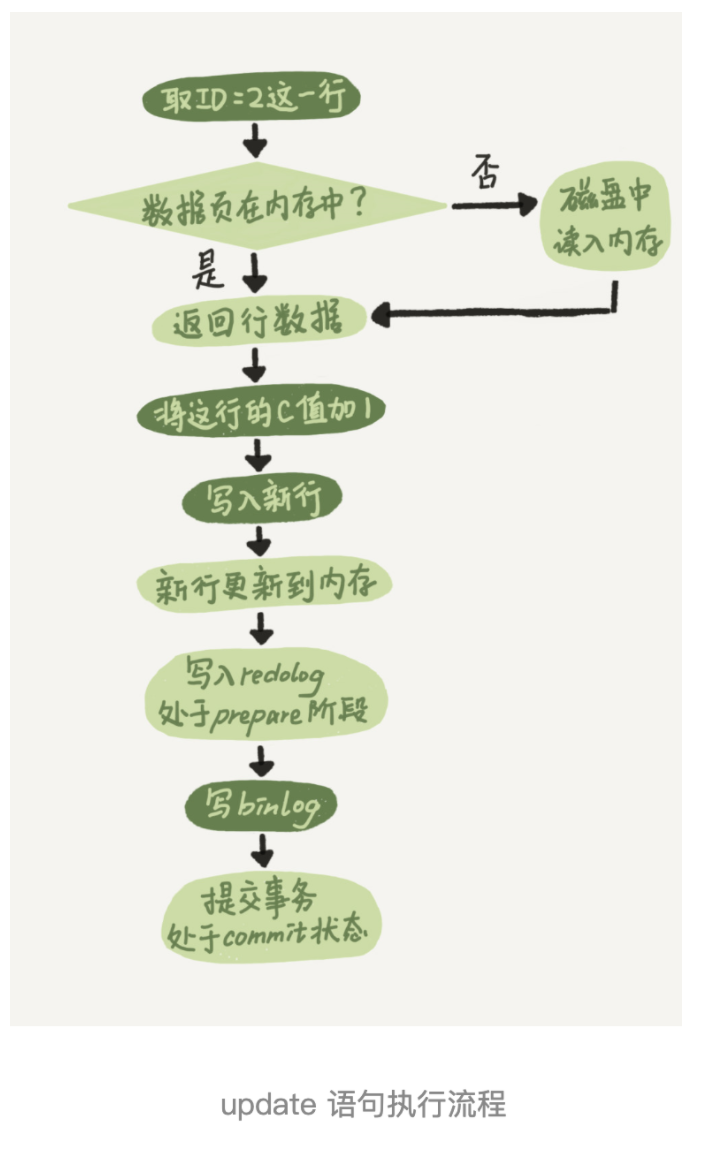 取ID=2这一行
数据页在内存中?
否
磁盘中
读入内存
是
返回行数据
将这行的C值加1
写入新行
新行更新到内存
写入redolog
处于prepare阶段
写binlog
提交事务
处于commit状态
update 语句执行流程